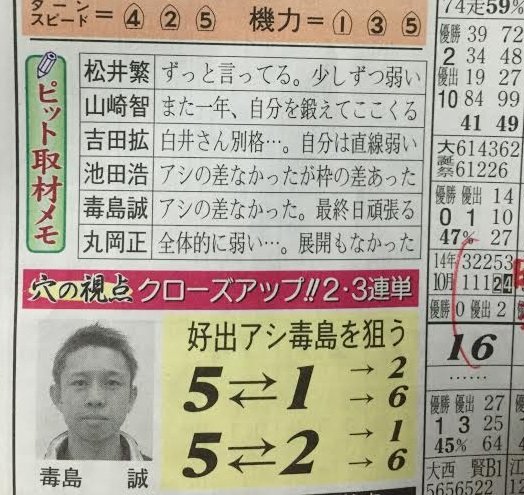 ターン
スピード=④②⑤ 機力=①③⑤
ピット取材メモ
松井繁 ずっと言ってる。少しずつ弱い
山崎智 また一年、自分を鍛えてここくる
吉田拡 白井さん別格…。自分は直線弱い
池田浩 アシの差なかったが枠の差あった
毒島誠 アシの差なかった。最終日頑張る
丸岡正 全体的に弱い…。展開もなかった
穴の視点 クローズアップ!!2・3連単
好出アシ毒島を狙う
5⇄1→2
→6
5⇄2→1
→6
毒島 誠
74走59%
優勝 39 72
2 34 48
優出 19 27
10 84 99
41 49
大614362
誕
祭61226
優勝 優出 14
0 1 10
47% 27
14年 32253
10月 11124
優勝 0 優出 2
16
……
優勝 優出 27
1 3 25
45% 64
大西 賢B1
5656522